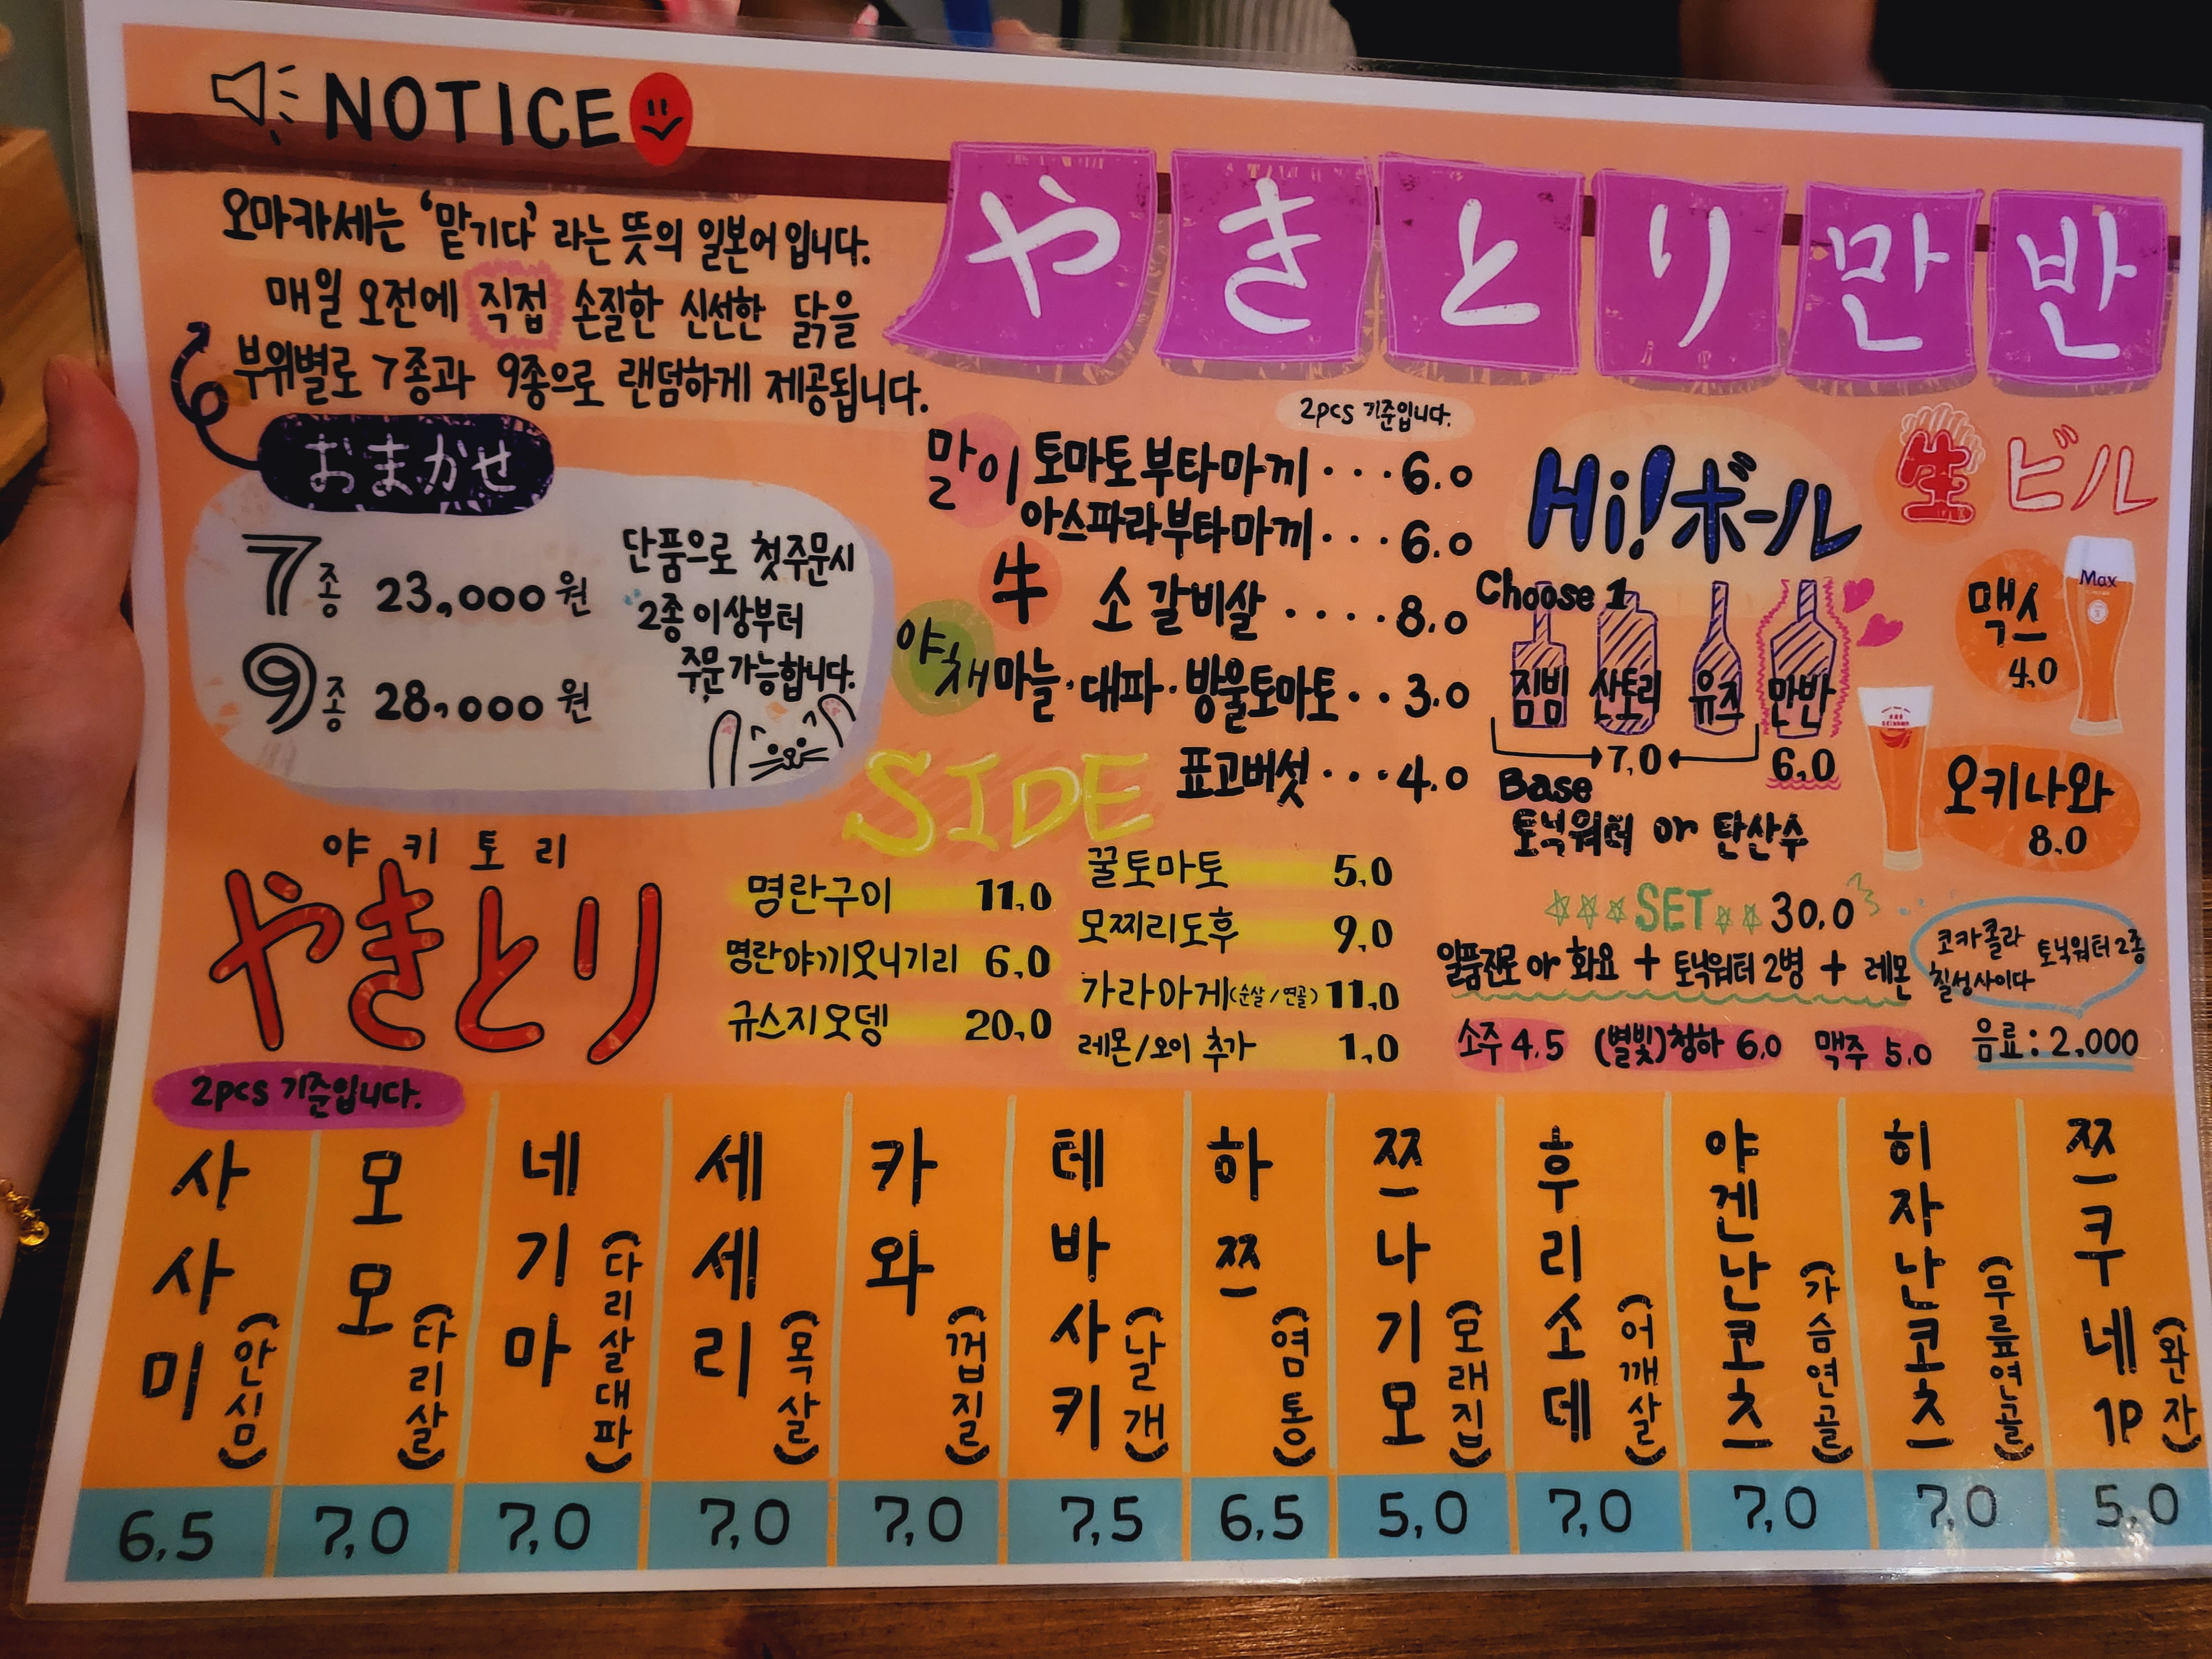 NOTICE
오마카세는 '맡기다' 라는 뜻의 일본어입니다.
매일 오전에 직접 손질한 신선한 닭을
부위별로 7종과 9종으로 랜덤하게 제공됩니다.
おまかせ
7종 23,000원
9종 28,000원
단품으로 첫주문시
2종이상부터
주문가능합니다.
やきとり만반
2pcs 기준입니다.
말이 토마토부타마끼...6.0
아스파라부타마끼...6.0
牛 소갈비살....8.0
야채 마늘·대파·방울토마토..3.0
표고버섯...4.0
Hi!ボール
Choose 1
짐빔 산토리 유즈 만반
7,0 6,0
Base
토닉워터 or 탄산수
生ビル
Max
맥스
4,0
오키나와
8,0
SET 30,0
일품진로 or 화요 + 토닉워터 2병 + 레몬
코카콜라
칠성사이다
토닉워터 2종
소주 4.5 (별빛)청하 6,0 맥주 5,0 음료: 2,000
SIDE
명란구이 11,0
명란야끼오니기리 6,0
규스지오뎅 20,0
꿀토마토 5,0
모찌리도후 9,0
가라아게(순살/연골) 11,0
레몬/오이 추가 1,0
야키토리
やきとり
2pcs 기준입니다.
사사미 (안심) 6,5
모모 (다리살) 7,0
네기마 (다리살대파) 7,0
세세리 (목살) 7,0
카와 (껍질) 7,0
테바사키 (날개) 7,5
하쯔 (염통) 6,5
쯔나기모 (모래집) 5,0
후리소데 (어깨살) 7,0
야겐난코츠 (가슴연골) 7,0
히자난코츠 (무릎연골) 7,0
쯔쿠네 1P (완자) 5,0